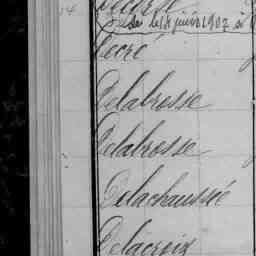 le 14 juin 1907 à
Decré
Delabrosse
Delabrosse
Delachaussée
Delacroix